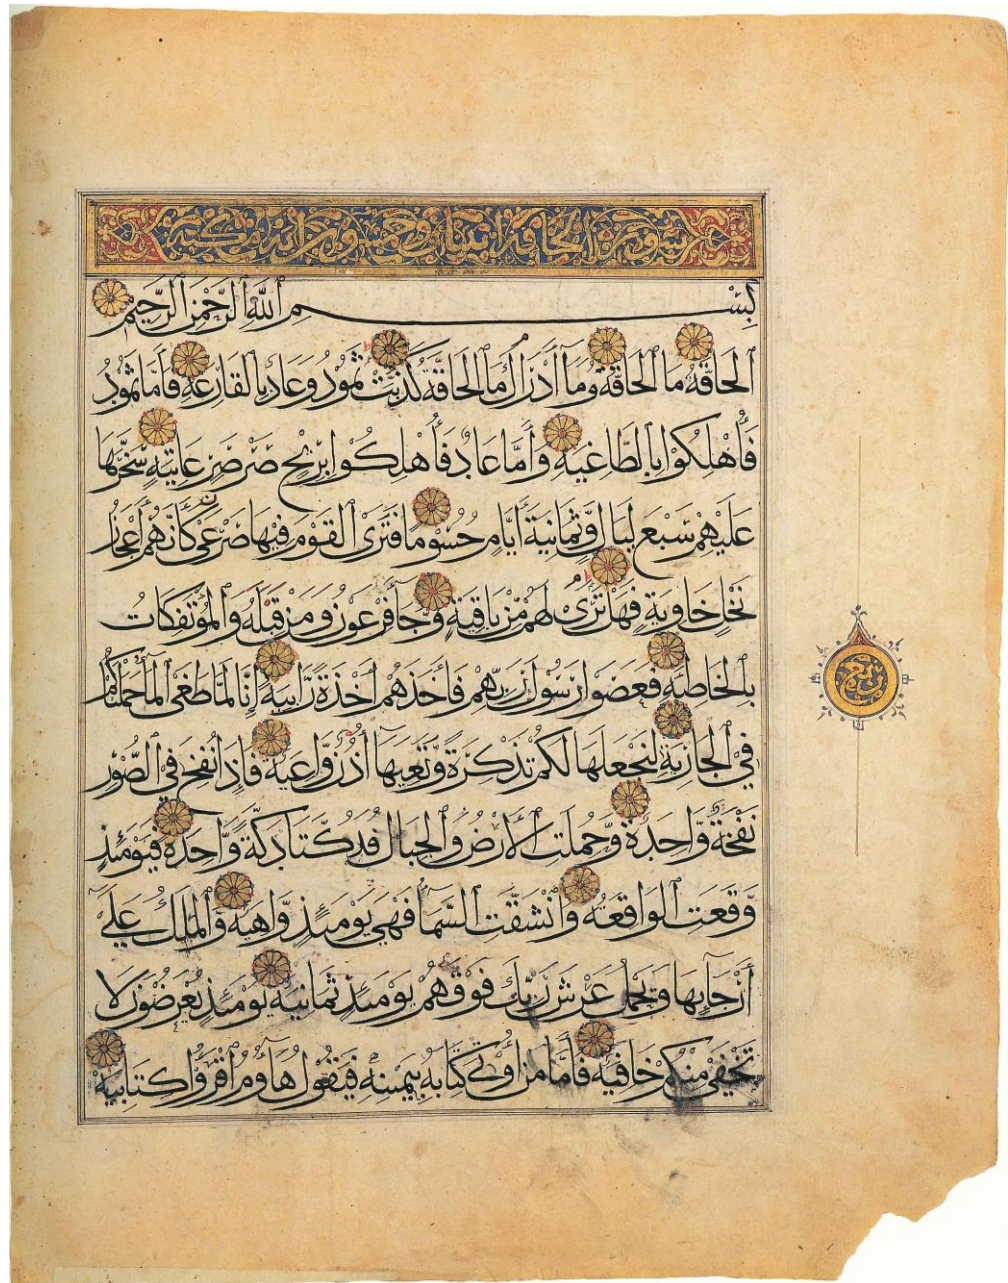 سورة الحاقة اثنتان وخمسون اية مكية
بِسْمِ ٱللَّهِ ٱلرَّحْمَٰنِ ٱلرَّحِيمِ
ٱلْحَاقَّةُ مَا ٱلْحَاقَّةُ وَمَآ أَدْرَاكَ مَا ٱلْحَاقَّةُ كَذَّبَتْ ثَمُودُ وَعَادٌ بِالْقَارِعَةِ فَأَمَّا ثَمُودُ
فَأُهْلِكُوا بِالطَّاغِيَةِ وَأَمَّا عَادٌ فَأُهْلِكُوا بِرِيحٍ صَرْصَرٍ عَاتِيَةٍ سَخَّرَهَا
عَلَيْهِمْ سَبْعَ لَيَالٍ وَّثَمَانِيَةَ أَيَّامٍ حُسُومًا فَتَرَى ٱلْقَوْمَ فِيهَا صَرْعَىٰ كَأَنَّهُمْ أَعْجَازُ
نَخْلٍ خَاوِيَةٍ فَهَلْ تَرَىٰ لَهُمْ مِّنْ بَاقِيَةٍ وَجَآءَ فِرْعَوْنُ وَمَنْ قَبْلَهُ وَٱلْمُؤْتَفِكَاتُ
بِٱلْخَاطِئَةِ فَعَصَوْا رَسُولَ رَبِّهِمْ فَأَخَذَهُمْ أَخْذَةً رَّابِيَةً إِنَّا لَمَّا طَغَى ٱلْمَآءُ حَمَلْنَاكُمْ
فِي ٱلْجَارِيَةِ لِنَجْعَلَهَا لَكُمْ تَذْكِرَةً وَّتَعِيَهَآ أُذُنٌ وَّاعِيَةٌ فَإِذَا نُفِخَ فِي ٱلصُّورِ
نَفْخَةٌ وَّاحِدَةٌ وَّحُمِلَتِ ٱلْأَرْضُ وَٱلْجِبَالُ فَدُكَّتَا دَكَّةً وَّاحِدَةً فَيَوْمَئِذٍ
وَّقَعَتِ ٱلْوَاقِعَةُ وَٱنْشَقَّتِ ٱلسَّمَآءُ فَهِيَ يَوْمَئِذٍ وَّاهِيَةٌ وَٱلْمَلَكُ عَلَىٰ
أَرْجَآئِهَا وَيَحْمِلُ عَرْشَ رَبِّكَ فَوْقَهُمْ يَوْمَئِذٍ ثَمَانِيَةٌ يَوْمَئِذٍ تُعْرَضُونَ لَا
تَخْفَىٰ مِنْكُمْ خَافِيَةٌ فَأَمَّا مَنْ أُوتِيَ كِتَابَهُ بِيَمِينِهِ فَيَقُولُ هَآؤُمُ ٱقْرَؤُا كِتَابِيَهْ